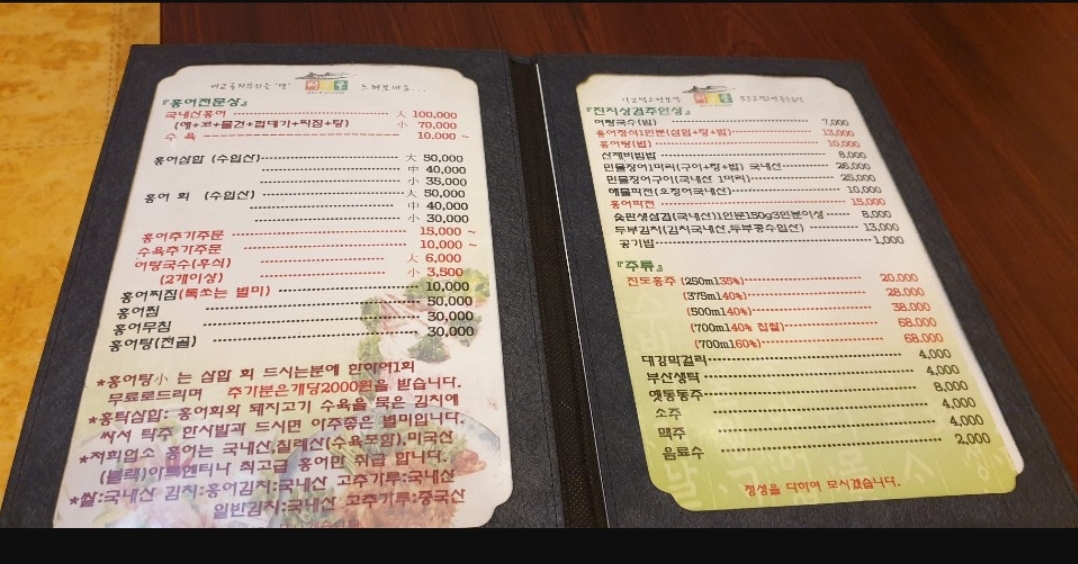 『홍어전문상』
국내산홍어 大 100,000
(애+코+물건+껍데기+찌짐+탕) 小 70,000
수 육 10,000 ~
홍어삼합 (수입산) 大 50,000
中 40,000
小 35,000
홍어 회 (수입산) 大 50,000
中 40,000
小 30,000
홍어추가주문 15,000 ~
수육추가주문 10,000 ~
어탕국수(후식) 大 6,000
(2개이상) 小 3,500
홍어찌짐(톡쏘는 별미) 10,000
홍어찜 50,000
홍어무침 30,000
홍어탕(전골) 30,000
*홍어탕小 는 삼합 회 드시는분에 한하여1회
무료로드리며 추가분은개당2000원을 받습니다.
*홍탁삼합: 홍어회와 돼지고기 수육을 묵은 김치에
싸서 탁주 한사발과 드시면 아주좋은 별미입니다.
*저희업소 홍어는 국내산,칠레산(수육포함),미국산
(블랙)아르헨티나 최고급 홍어만 취급 합니다.
*쌀:국내산 김치:홍어김치:국내산 고추가루:국내산
일반김치:국내산 고추가루:중국산
『진지상겸주안상』
어탕국수(밥) 7,000
홍어정식1인분(삼합+탕+밥) 13,000
홍어탕(밥) 10,000
산채비빔밥 8,000
민물장어1마리(구이+탕+밥) 국내산 28,000
민물장어구이(국내산 1마리) 25,000
해물파전(오징어국내산) 10,000
홍어파전 15,000
솥뚜껑삼겹(국내산)1인분150g3인분이상 8,000
두부김치(김치국내산,두부콩수입산) 13,000
공기밥 1,000
『주류』
진도홍주 (250ml35%) 20,000
(375ml40%) 28,000
(500ml40%) 38,000
(700ml40% 찹쌀) 68,000
(700ml60%) 68,000
대강막걸리 4,000
부산생탁 4,000
옛동동주 8,000
소주 4,000
맥주 4,000
음료수 2,000
정성을 다하여 모시겠습니다.